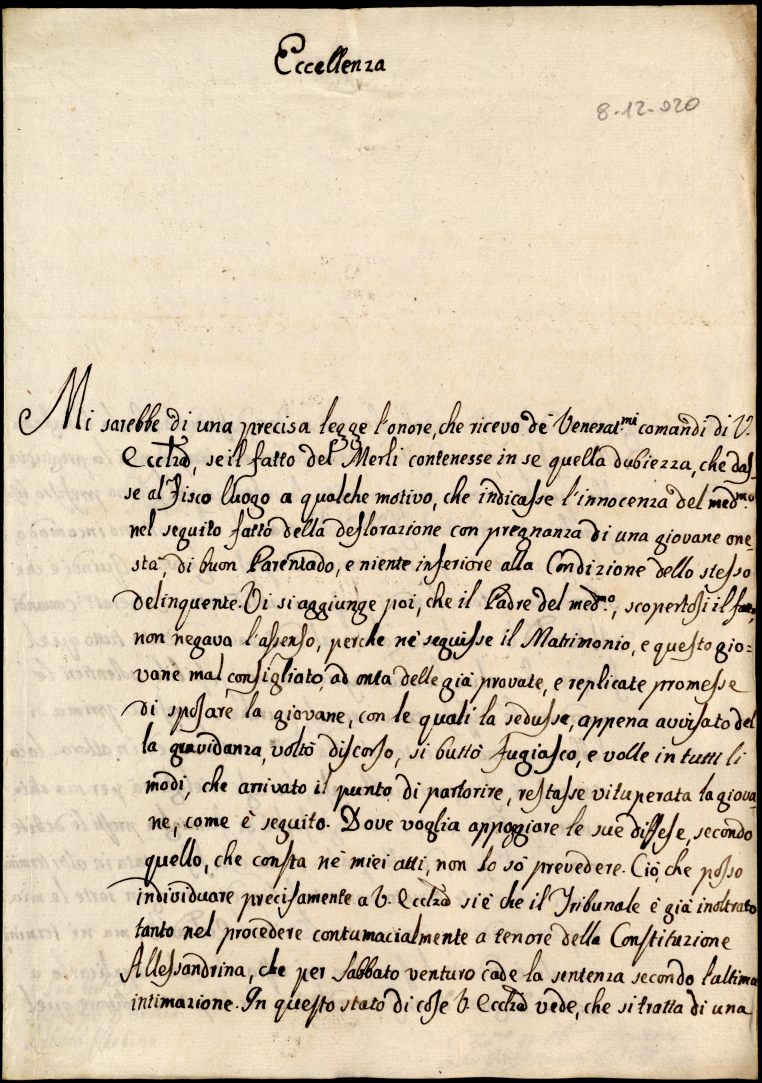 Eccellenza
8-12-920
Mi sarebbe di una precisa legge l'onore, che ricevo de' Venerat.mi comandi di V.
Ecclza, se il fatto del Merli contenesse in se quella dubiezza, che das-
se al Fisco luogo a qualche motivo, che indicasse l'innocenza del med.mo
nel seguito fatto della deflorazione con pregnanza di una giovane one-
sta, di buon Parentado, e niente inferiore alla Condizione dello stesso
delinquente. Vi si aggiunge poi, che il Padre del med.mo, scopertosi il fatto,
non negava l'assenso, perche ne seguisse il Matrimonio, e questo gio=
vane mal consigliato, ad onta delle già provate, e replicate promesse
di sposare la giovane, con le quali la sedusse, appena avvisato del
la gravidanza, voltò discorso, si buttò fugiasco, e volle in tutti li
modi, che arrivato il punto di partorire, restasse vituperata la giova
ne, come è seguito. Dove voglia appoggiare le sue diffese, secondo
quello, che consta ne' miei atti, non lo sò prevedere. Ciò, che posso
individuare precisamente a V. Ecclza si è che il Tribunale è già inoltrato
tanto nel procedere contumacialmente a tenore della Constituzione
Allessandrina, che per Sabbato venturo cade la sentenza secondo l'ultima
intimazione. In questo stato di cose V. Ecclza vede, che si tratta di una